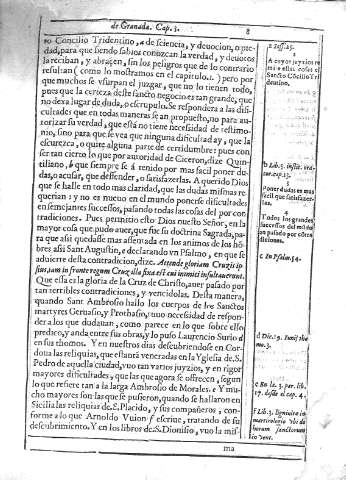 de Granada. Cap. 3.
8
ro Concilio Tridentino, a de sciencia, y deuocion, o pie-
dad, para que siendo sabios conozcan la verdad, y deuotos
la reciban, y abraçen, sin los peligros que de lo contrario
resultan (como lo mostramos en el capitulo.1.) pero por
que muchos se vsurpan el juzgar, que no lo tienen todo,
pues que la certeza deste sancto negocio es tan grande, que
no dexa lugar de duda, o escrupulo. Se respondera a las difi-
cultades que en todas maneras se an propuesto, no para au-
torizar su verdad, que està no tiene necesidad de testimo-
nio, sino para que se vea que ninguna dificultad ay, que la
escurezca, o quite alguna parte de certidumbre: pues con
ser tan cierto lo que por autoridad de Ciceron, dize Quin-
tiliano, b que siempre se à tenido por mas facil poner du-
das, o acusar, que deffender, o satisfazerlas. A querido Dios
que se halle en todo mas claridad, que las dudas mismas re-
querian: y no es nueuo en el mundo ponerse dificultades
en semejantes successos, pasando todas las cosas del por con-
tradiciones. Pues permitio esto Dios nuestro Señor, en la
mayor cosa que pudo auer, que fue su doctrina Sagrada, pa-
ra que asi quedasse mas assentada en los animos de los hō-
bres asi Sant Augustin, c declarando vn Psalmo, en que se
aduierte desta contradicion, dize. Attende gloriam Crucis ip-
sius, iam in fronte regum Crux illa fixa est cui inimici insultauerunt.
Que essa es la gloria de la Cruz de Christo, auer pasado por
tan terribles contradiciones, y vencidolas. Desta manera,
quando Sant Ambrosio hallo los cuerpos de los Sanctos
martyres Geruasio, y Prothasio, tuuo necesidad de respon-
der a los que dudauan, como parece en lo que sobre ello
predico, y anda entre sus obras, y lo puso Laurencio Surio d
en sus thomos. Y en nuestros dias descubriendose en Cor-
doua las reliquias, que estan à veneradas en la Yglesia de S.
Pedro de aquella ciudad, vuo tan varios juyzios, y en rigor
mayores dificultades, que las que agora se offrecen, segun
lo que refiere tan a la larga Ambrosio de Morales. e Y mu-
cho mayores son las que se pusieron, quando se hallaron en
Sicilia las reliquias de S. Placido, y sus compañeros, con-
forme a lo que Arnoldo Vuion f escriue, tratando de su
descubrimiento. Y en los libros de S. Dionisio, vuo la mis-
ma
a Sess. 25.
b Lib. 5. instit. ora-
tor. cap. 13.
3
Poner dudas es mas
facil que satisfazer-
las.
4
Todos los grandes
successos del mundo
an pasado por cōtra
diciones.
c In Psalm. 54.
d Die. 19. Iunij tho
mo. 3.
e En la. 3. par. lib.
17. desde el cap. 4.
f Lib. 3. ligni vitæ in
martirologio